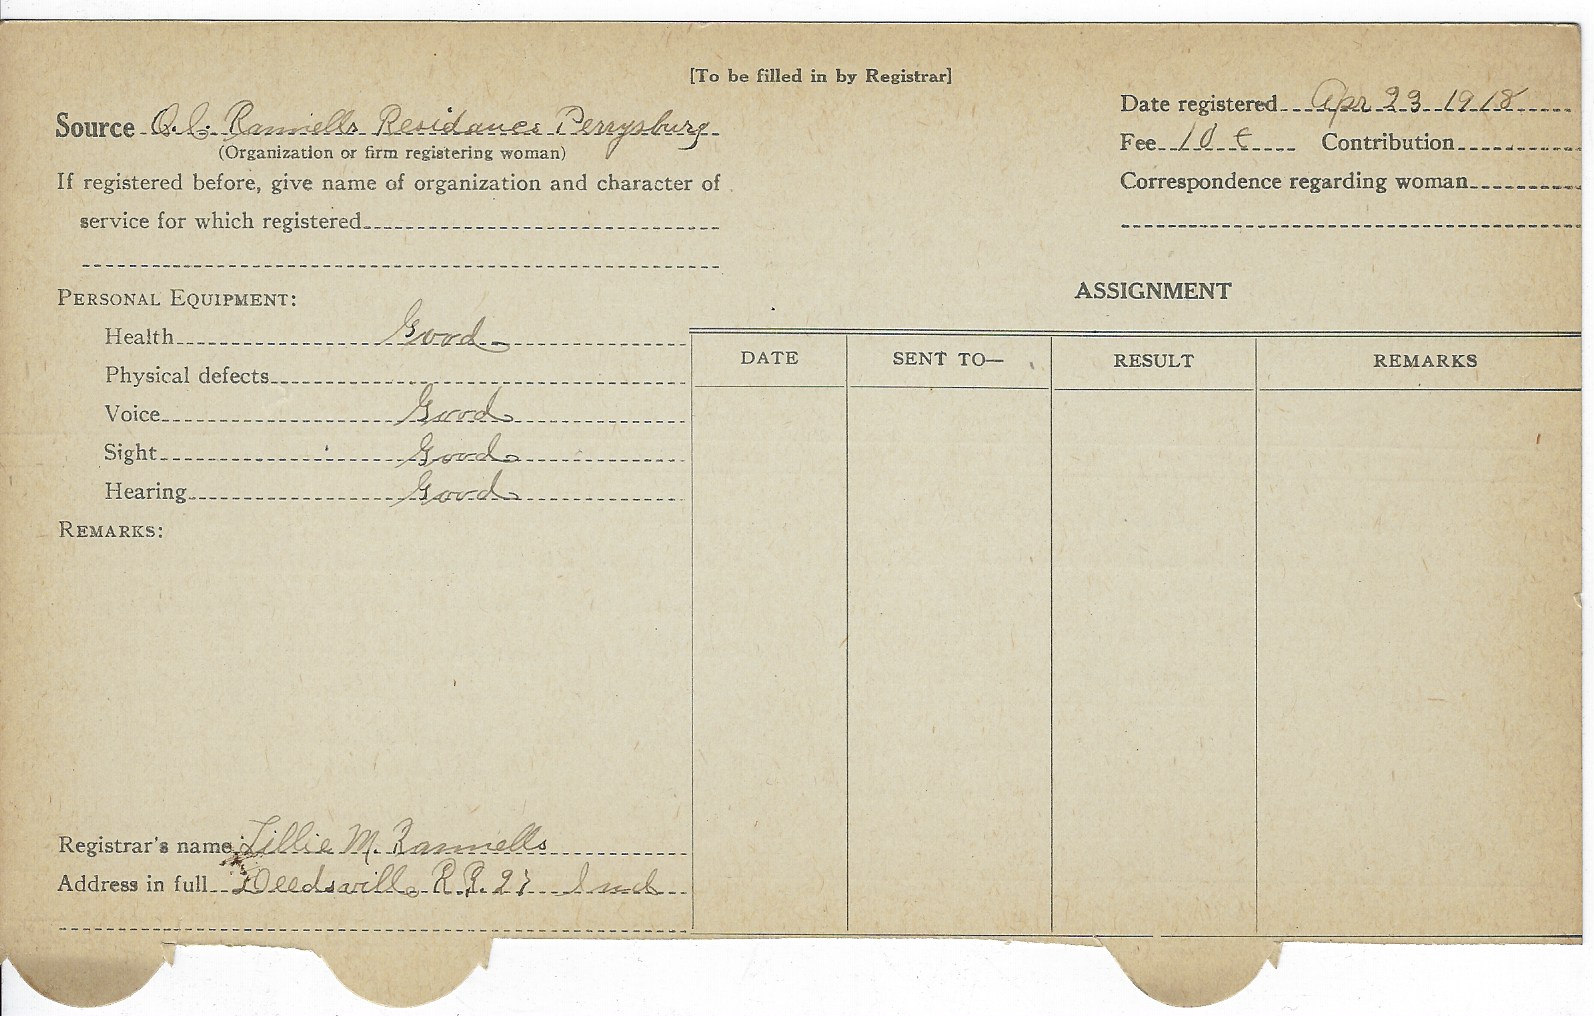 [To be filled in by Registrar]
Source O. C. Rannells Residance Perrysburg
(Organization or firm registering woman)
If registered before, give name of organization and character of
service for which registered
Date registered Apr 23 1918
Fee 10 ¢ Contribution
Correspondence regarding woman
PERSONAL EQUIPMENT:
Health Good
Physical defects
Voice Good
Sight Good
Hearing Good
REMARKS:
ASSIGNMENT
DATE SENT TO— RESULT REMARKS
Registrar's name Lillie M. Rannells
Address in full Deedsville R.R. 27 Ind